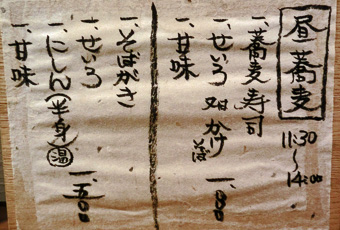 昼蕎麦
11:30
~
14:00
一、蕎麦寿司
一、せいろ 又は かけそば
一、甘味
一、八〇〇
一、そばがき
一、せいろ
一、にしん(半身)温
一、甘味
一、五〇〇